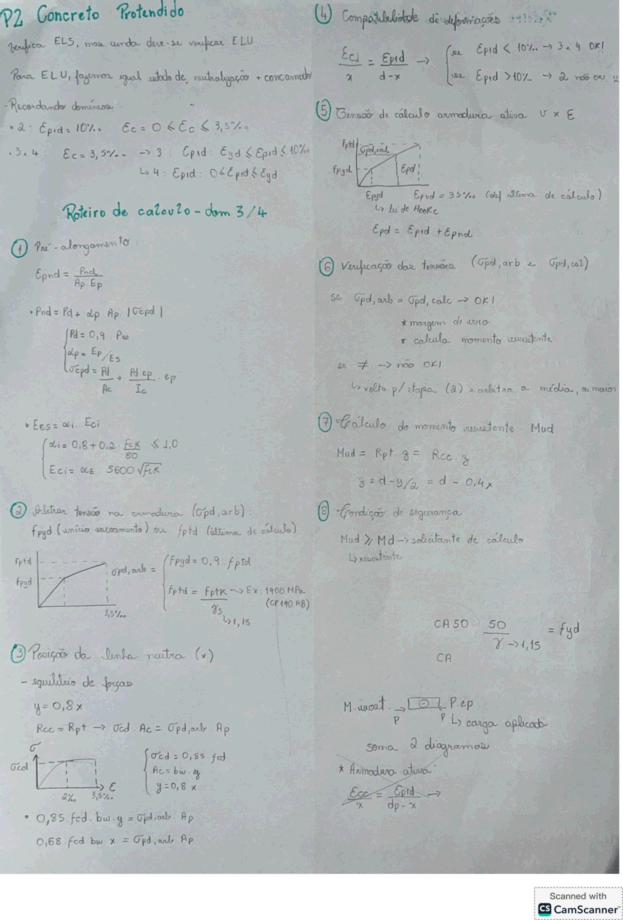 P2 Concreto Protendido
Verifica ELS, mas ainda deve-se verificar ELU
Para ELU, fazemos igual estado de neutralização + concomit
- Recordando domínios
• 2: Epid = 10‰ Ec = 0 ≤ Ec ≤ 3,5‰
• 3.4: Ec = 3,5‰ → 3: Epid: Eyd ≤ Epid ≤ 10‰
↳ 4: Epid: 0 ≤ Epid ≤ Eyd
Roteiro de calculo - dom 3/4
① Pré-alongamento
Epnd = Pnd / Ap. Ep
• Pnd = Pd + αp Ap |σcpd|
Pd = 0,9 P∞
αp = Ep/Es
σcpd = Pd/Ac + Pd ep/Ic . ep
• Ecs = αi. Eci
αi = 0,8 + 0,2 fck/80 ≤ 1,0
Eci = αE 5600 √fck
② Arbitrar tensão na armadura (σpd,arb):
fpyd (início escoamento) ou fptd (última de cálculo)
fptd
fpyd
3,5‰
σpd,arb = fpyd = 0,9. fptd
fptd = fptk/γs → Ex: 1900 MPa
(CP190 RB)
↳ 1,15
③ Posição da linha neutra (x)
- equilíbrio de forças
y = 0,8x
Rcc = Rpt → σcd. Ac = σpd,arb. Ap
σ
σcd
2‰ 3,5‰ ε
σcd = 0,85 fcd
Ac = bw. y
y = 0,8 x
• 0,85. fcd. bw. y = σpd,arb. Ap
0,68. fcd bw x = σpd,arb Ap
④ Compatibilidade de deformações
Eci/x = Epid/d-x → se Epid < 10‰ → 3.4 OK!
se Epid > 10‰ → 2 não ou
⑤ Tensão de cálculo armadura ativa σ x E
fptd
fpyd
σpd,cal
Epd
Eppd Epud = 35‰ (def última de cálculo)
↳ lei de Hooke
Epd = Epid + Epnd
⑥ Verificação das tensões (σpd,arb e σpd,cal)
se σpd,arb = σpd,calc → OK!
* margem de erro
* calcula momento resistente
se ≠ → não OK!
↳ volta p/ etapa (2) = arbitra a média, a maior
⑦ Cálculo do momento resistente Mud
Mud = Rpt. z = Rcc. z
z = d - y/2 = d - 0,4x
⑧ Condição de segurança
Mud ≥ Md → solicitante de cálculo
↳ resistente
CA50 50 / γ → 1,15 = fyd
CA
M. → P ep
P P ↳ carga aplicada
soma 2 diagramas
* Armadura ativa:
Ecc/x = Epid/dp-x →
Scanned with
CS CamScanner